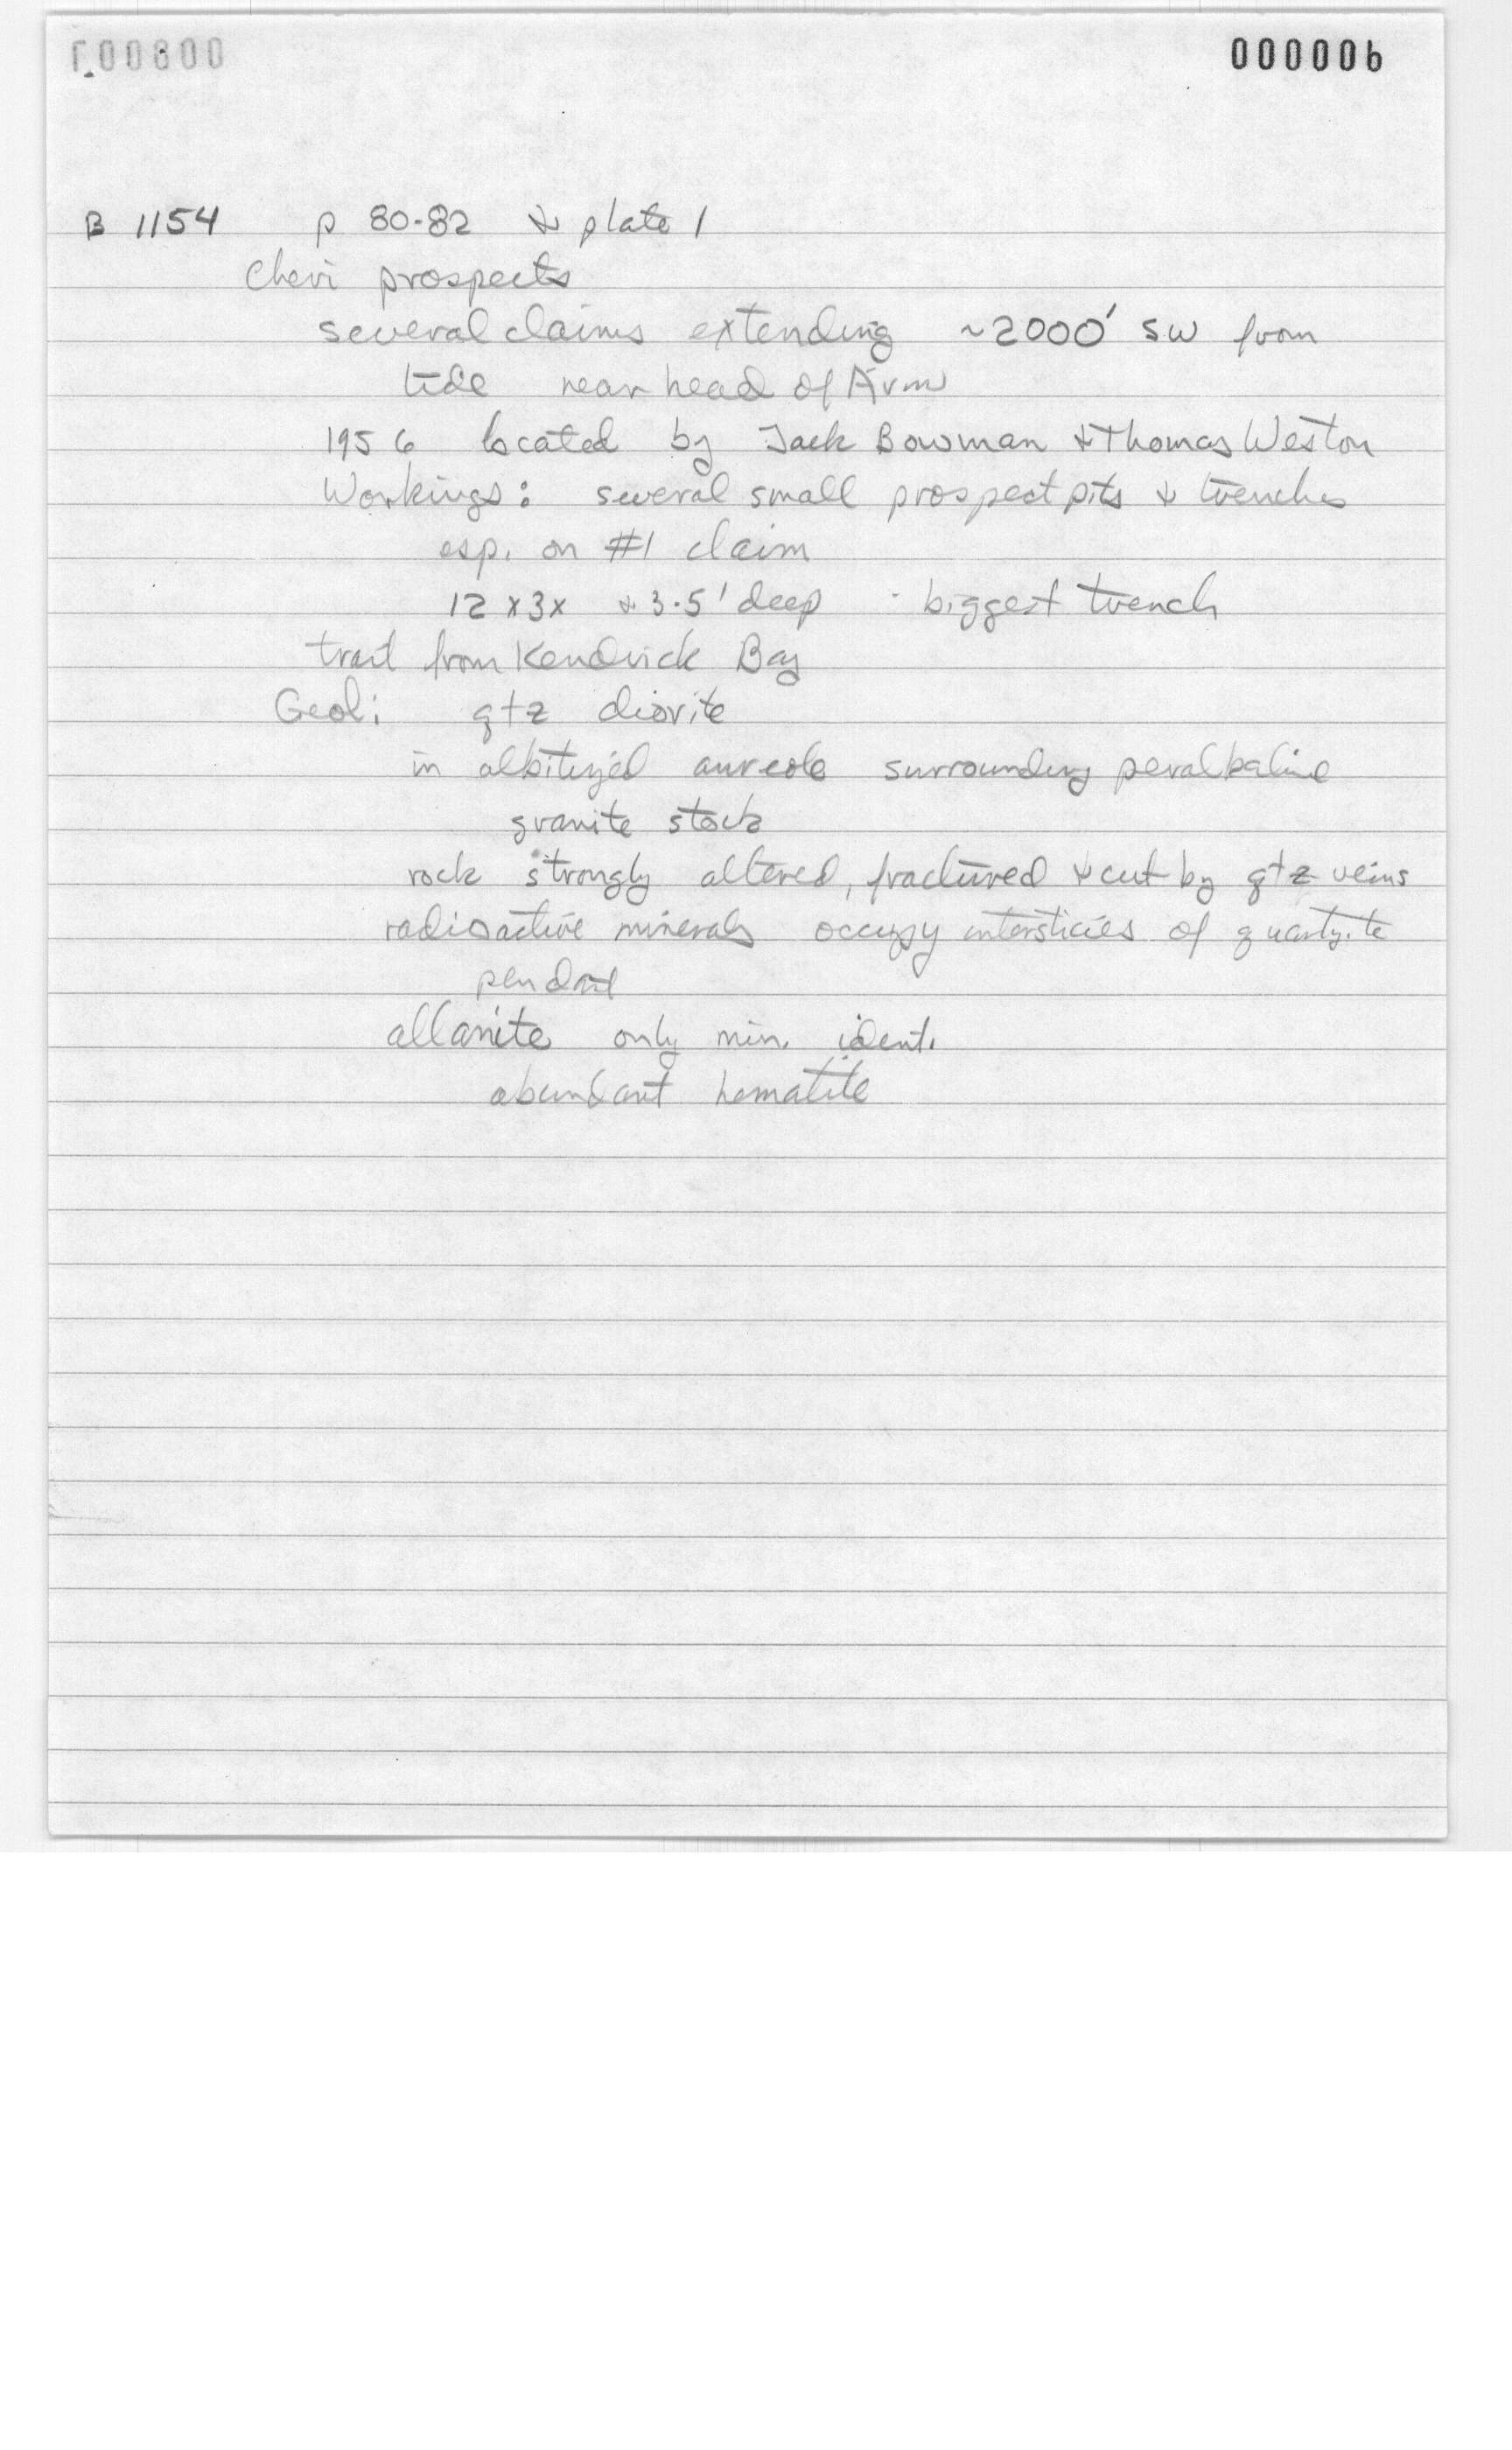 000006
B 1154 p 80-82 & plate 1
Chevi prospects
several claims extending ~2000' SW from
tide near head of Arm
1956 located by Jack Bowman & Thomas Weston
Workings: several small prospect pits & trenches
esp. on #1 claim
12 x 3 x & 3.5' deep - biggest trench
trail from Kendrick Bay
Geol: qtz diorite
in albitized aureole surrounding peralkaline
granite stock
rock strongly altered, fractured & cut by qtz veins
radioactive minerals occupy intersticies of quartzite
pendant
allanite only min. ident.
abundant hematite